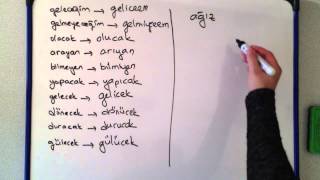 geleceğim → gelicem
gelmeyeceğim → gelmiyecem
olacak → olucak
arayan → arıyan
bilmeyen → bilmiyen
yapacak → yapıcak
gelecek → gelicek
dönecek → dönücek
duracak → durucak
gülecek → gülücek
ağız